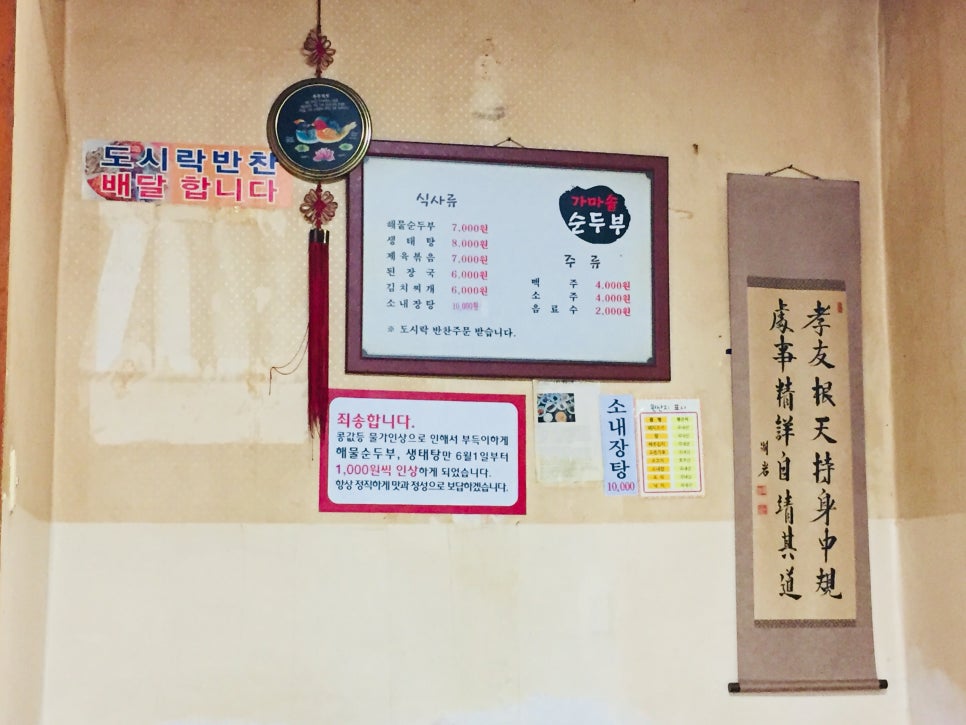 도시락반찬
배달 합니다
식사류
해물순두부 7,000원
생태탕 8,000원
제육볶음 7,000원
된장국 6,000원
김치찌개 6,000원
소내장탕 10,000원
※ 도시락 반찬주문 받습니다.
가마솥
순두부
주류
맥주 4,000원
소주 4,000원
음료수 2,000원
죄송합니다.
콩값등 물가인상으로 인해서 부득이하게
해물순두부, 생태탕만 6월1일부터
1,000원씩 인상하게 되었습니다.
항상 정직하게 맛과 정성으로 보답하겠습니다.
소내장탕
10,000
원산지 표시
孝友根天持身中規
處事精詳自靖其道